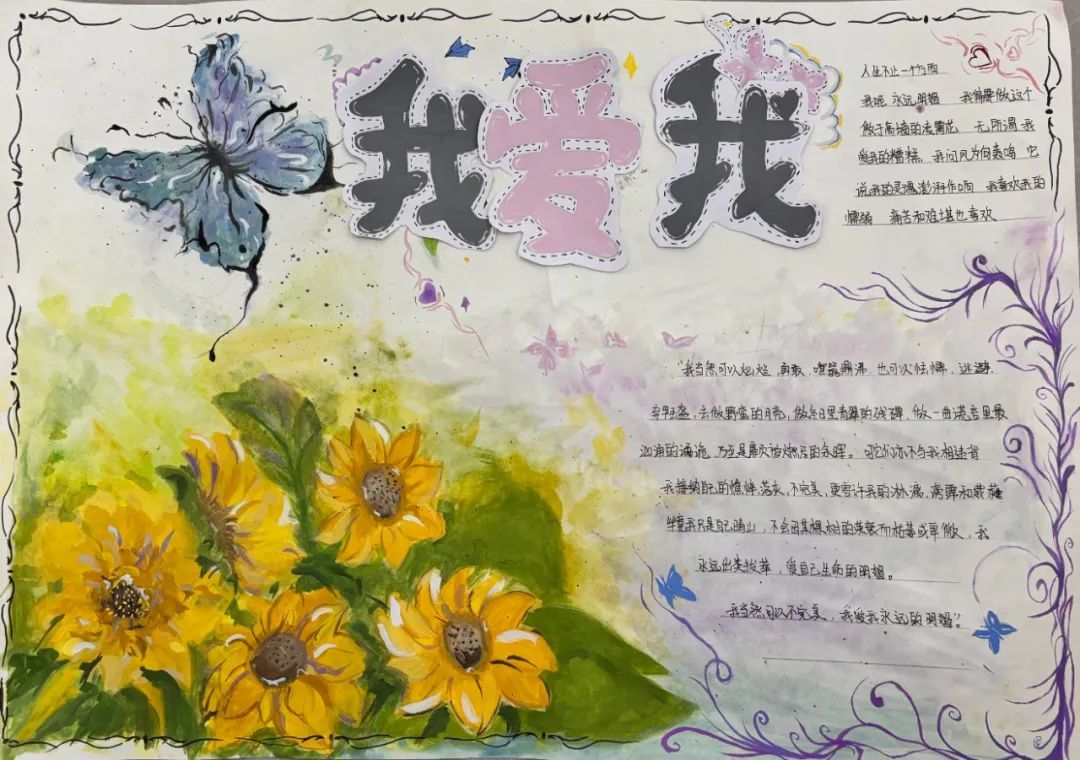 我爱我
人生不止一个方向
我呢 永远明媚 我偏要做这个
傲于高墙的凌霄花 无所谓 我
爱我的糟糕 我问风为何轰鸣 它
说我的灵魂澎湃作响 我喜欢我的
懦弱 痛苦和难堪也喜欢
"我当然可以灿烂、勇敢、嚣嚣鼎沸，也可以怯懦、逃避
去做野蛮的月亮，做冬日里青翠的残碑，做一曲谎言里最
汹涌的涌诡，乃至是摩灭的余晖。可它们亦不与我相违背
我接纳自己的憔悴、落灰、不完美，更容许我的淋漓、病骨和荒芜
我只是自己的山，不会因某棵树的荣衰而枯萎或卑微，我
永远出类拔萃，爱自己生命的明媚。
我当然可以不完美，我爱我永远的明媚。"